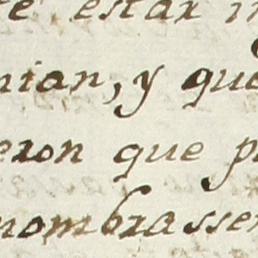 te estar in
nian, y que
eron que p
nombrassen